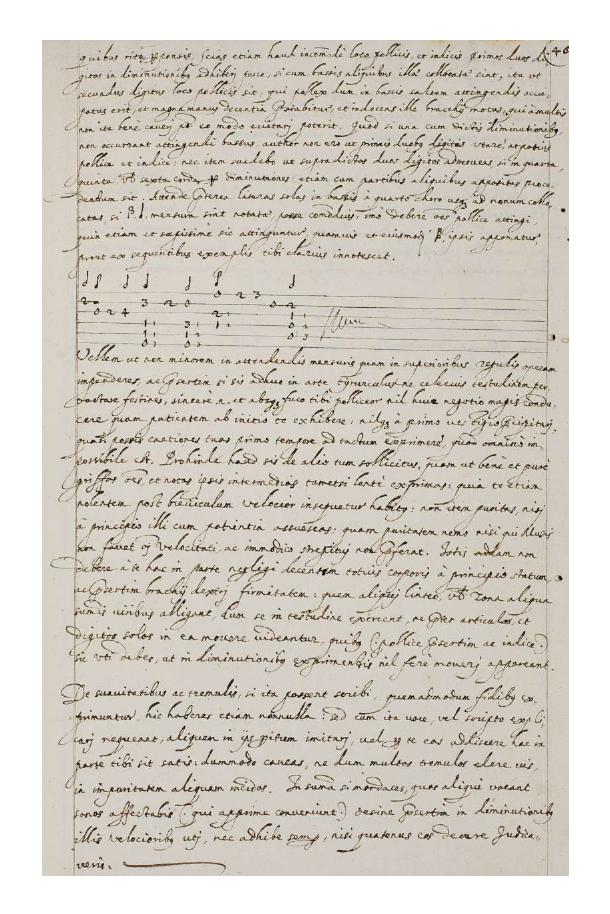 46
quibus ritè perpensis, scias etiam haud incomodi loco pollicis, et indicis primos duos di
gitos in diminutionibq adhiberi posse, si cum bassis aliquibus illae collocatae sint, ita ut
secundus digitus loco pollicis sit, qui pollex dum in bassis saltem attingendis occu
patus erit, et magna manus decentia portabitur, et indecens ille brachij motus, qui à multis
non ita bene caveri pt eo modo evitari poterit. Quod si una cum dictis diminutionibq
non occurrant attingendi bassus, author non ero ut primis duobq digitis utare, at potius
pollice et indice: nec item suadebo ut supradictos duos digitos admoveas, si in quarta,
quinta vel sexta corda diminutiones etiam cum partibus aliquibus appositas proce
dendum sit. Attende praeterea literas solas in bassis à quarto choro usq ad nonum collo
catas, si mensura sint notatae, posse comodius imò debere oes pollice attingi,
quin etiam et saepissime sic attinguntur, quamuis et eiusmodi ipsis apponatur,
prout ex sequentibus exemplis tibi clarius innotescet.
2 0 2 4 3 2 0 0 2 3 0 2
Vellem ut non minorem in attendendis mensuris quam in superioribus regulis operam
impenderes, ac praesertim si sis adhuc in arte tyrunculus, ne celerius testudinem per
tractare festines, sincere n. et absq fuco tibi polliceor nil huic negotio magis condu
cere quam patientem ab initio te exhibere: nilq à primo
quasi possis cantiones tuas primo tempore ad tactum exprimere, quod omninò im
possibile est. Prohinde haud sis de alio tum sollicitus, quam ut bene et purè
griffos oes, et notas ipsis intermedias tametsi lentè exprimas: quia te etiam
nolentem post bienniculum velocior insequetur habitq: non item puritas, nisi
à principio illi cum patientia assuescas: quam puritatem nemo nisi qui Musis
non favet velocitati, ac immodico strepitui non praeferat. Istis addam non
debere à te hac in parte negligi decentem totius corporis à principio statum
ac praesertim brachij dextri firmitatem: quem aliqui linteo, vel zona aliqua
summis viribus alligant, dum se in testudine exercent, ne praeter articulos, et
digitos solos in ea movere videantur, quibq (: pollice praesertim ac indice :)
sic uti debes, ut in diminutionibq exprimendis nil ferè moveri appareant.
De suavitatibus ac tremulis, si ita possent scribi, quemadmodum fidibq ex
primuntur, hic haberes etiam nonnulla: sed cum ita voce, vel scripto expli
cari nequeant, aliquem in ijs peritum imitari, vel per te eas addiscere hac in
parte tibi sit satis: dummodo caveas, ne dum multos tremulos edere vis,
in impuritatem aliquam incidas. In summa si mordaces, quos aliqui vocant
sonos affectabis (: qui apprime conveniunt :) desine praesertim in diminutionibq
illis velocioribq uti, nec adhibe semp, nisi quatenus eos decere Judica-
veris.